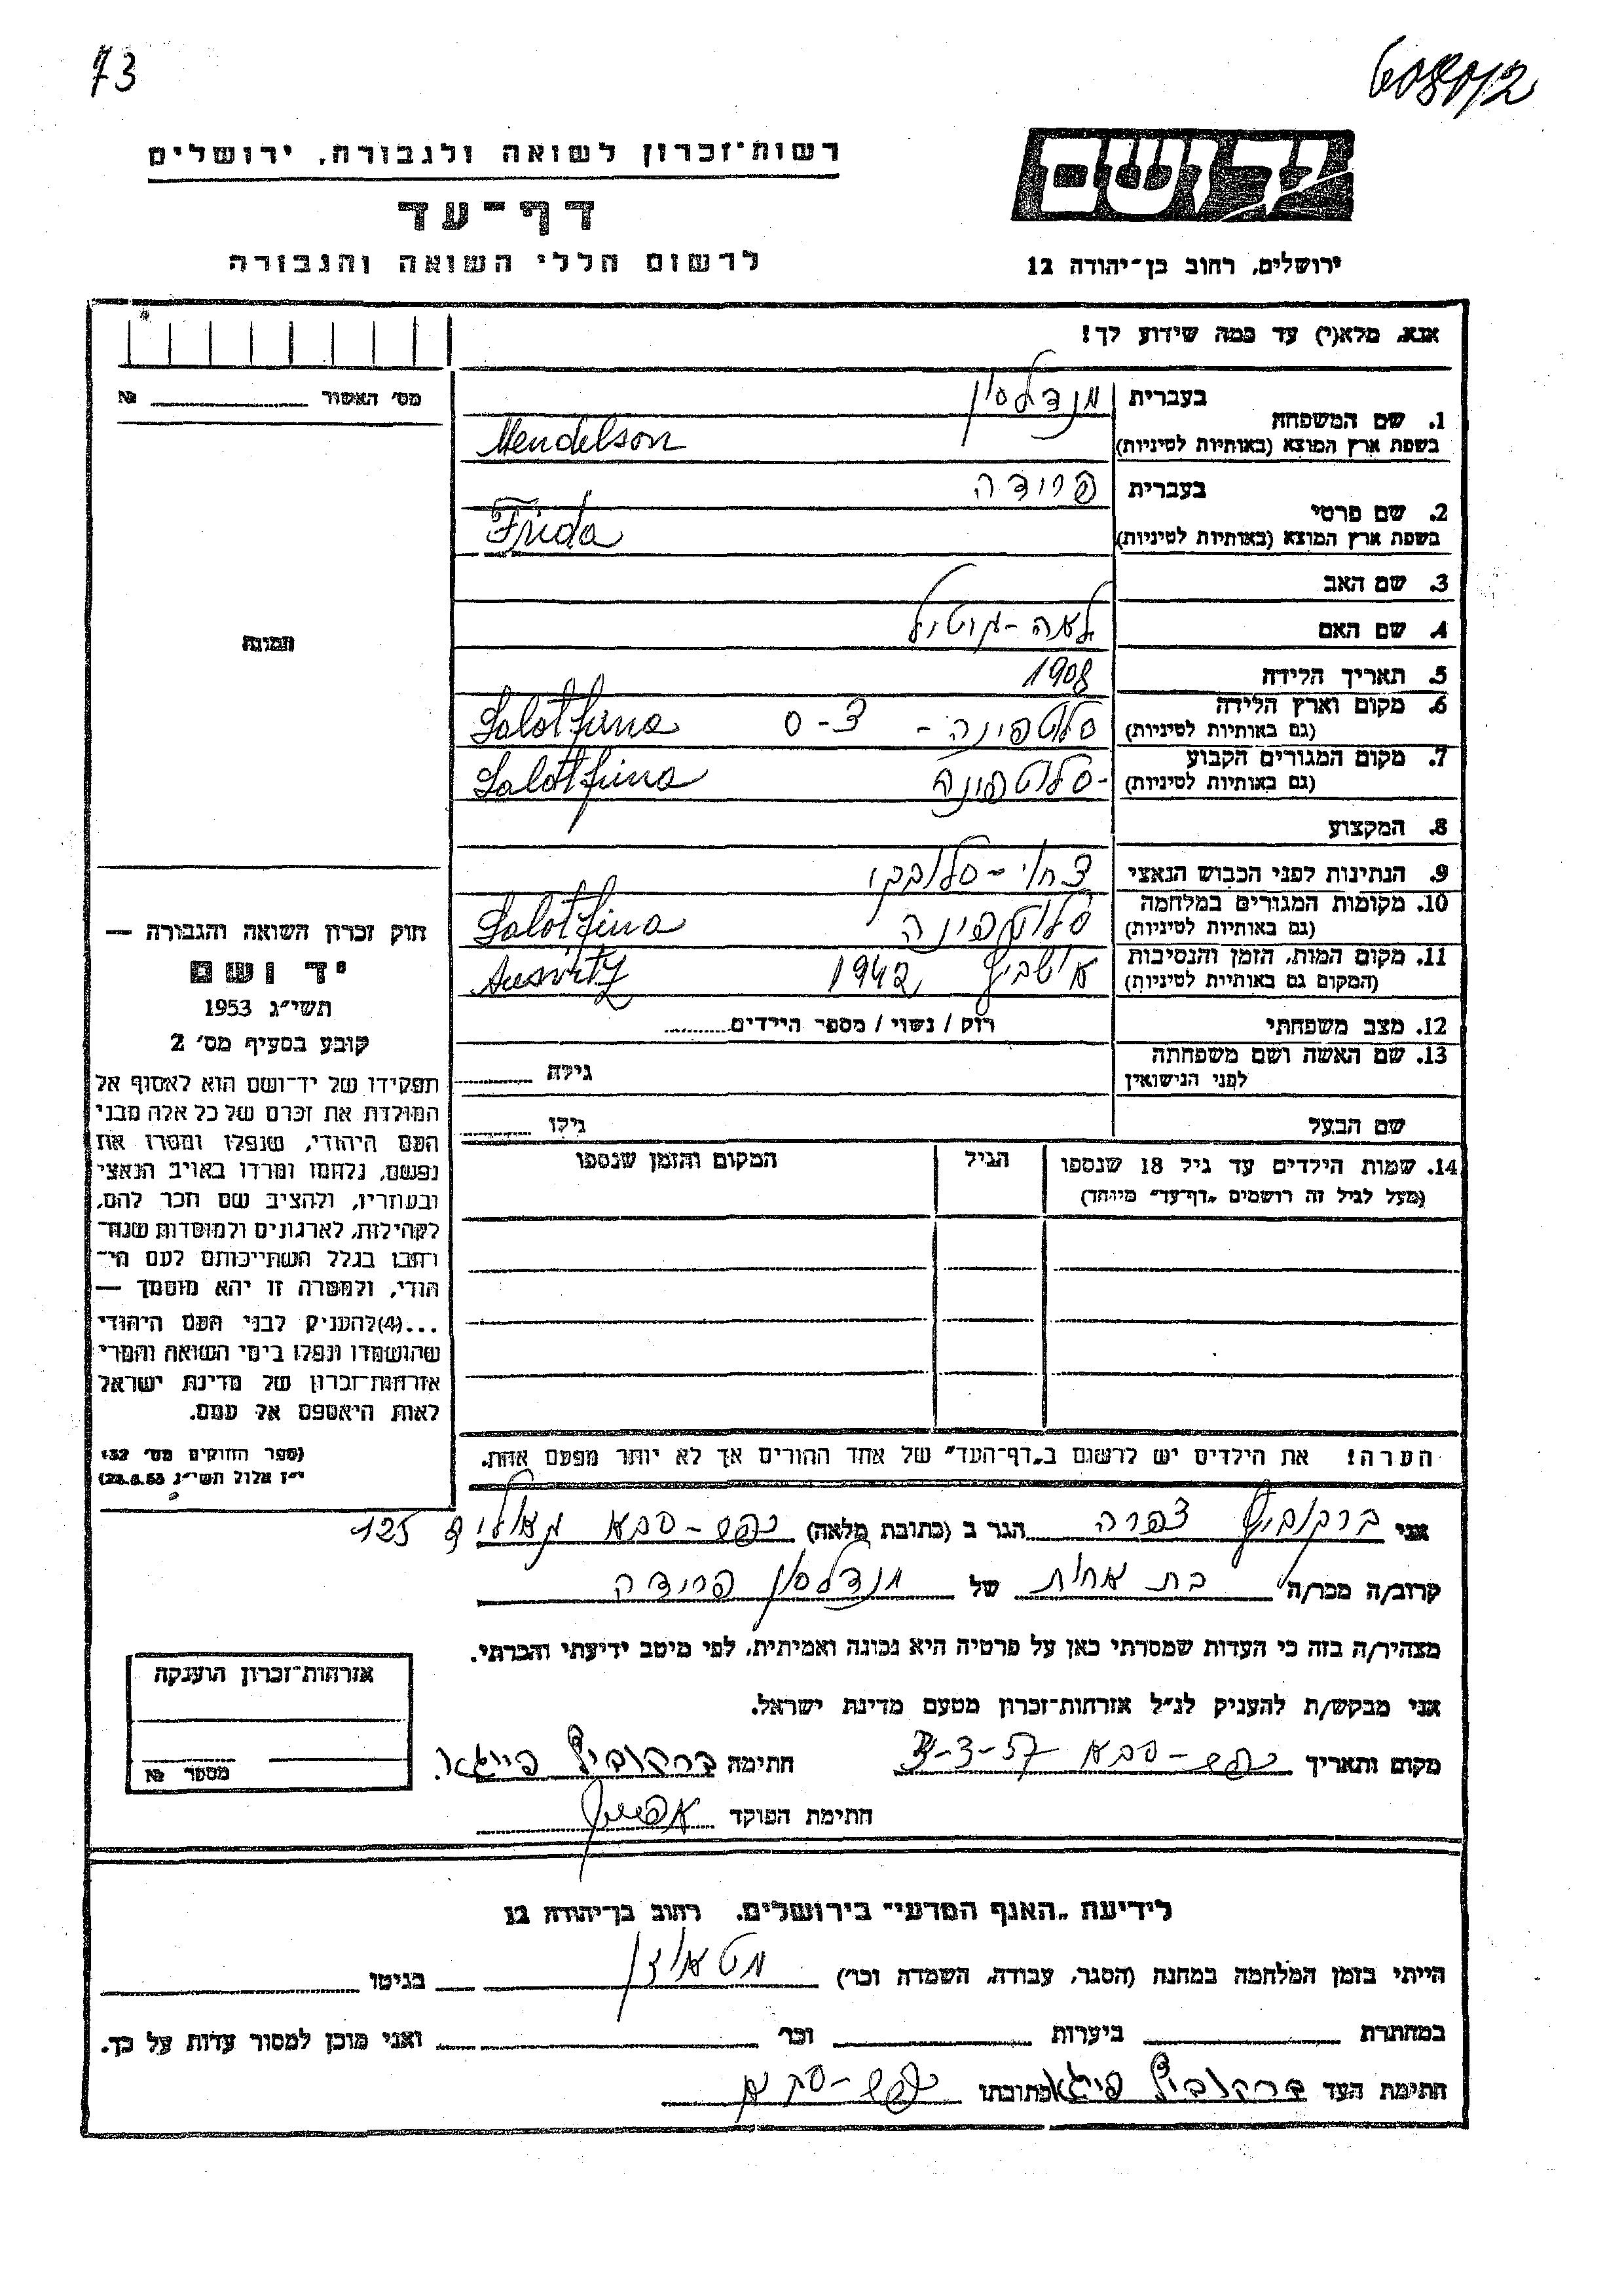 73
608012
רשות־זכרון לשואה ולגבורה, ירושלים
דף־עד
לרשום חללי השואה והגבורה
יד ושם
ירושלים, רחוב בן־יהודה 12
אנא, מלא(י) עד כמה שידוע לך!
מס׳ האשור № 
1. שם המשפחה בעברית מנדלסון
בשפת ארץ המוצא (באותיות לטיניות) Mendelson
2. שם פרטי בעברית פרידה
בשפת ארץ המוצא (באותיות לטיניות) Frida
3. שם האב
4. שם האם לאה-
5. תאריך הלידה 1908
6. מקום וארץ הלידה (גם באותיות לטיניות) סלוטפינה - צ-ס Salotfina
7. מקום המגורים הקבוע (גם באותיות לטיניות) סלוטפינה Salotfina
8. המקצוע
9. הנתינות לפני הכבוש הנאצי
10. מקומות המגורים במלחמה (גם באותיות לטיניות) סלוטפינה Salotfina
11. מקום המות, הזמן והנסיבות (המקום גם באותיות לטיניות) אושביץ 1942 Ausvitz
12. מצב משפחתי רוק / נשוי / מספר הילדים
13. שם האשה ושם משפחתה לפני הנישואין גילה
שם הבעל גילו
14. שמות הילדים עד גיל 18 שנספו הגיל המקום והזמן שנספו
(מעל לגיל זה רושמים „דף־עד" מיוחד)
הערה! את הילדים יש לרשום ב„דף־העד" של אחד ההורים אך לא יותר מפעם אחת.
תמונה
חוק זכרון השואה והגבורה —
יד ושם
תשי״ג 1953
קובע בסעיף מס׳ 2
תפקידו של יד־ושם הוא לאסוף אל
המולדת את זכרם של כל אלה מבני
העם היהודי, שנפלו ומסרו את
נפשם, נלחמו ומרדו באויב הנאצי
ובעוזריו, ולהציב שם וזכר להם,
לקהילות, לארגונים ולמוסדות שנח־
רבו בגלל השתייכותם לעם הי־
הודי, ולמטרה זו יהא מוסמך —
...(4) להעניק לבני העם היהודי
שהושמדו ונפלו בימי השואה והמרי
אזרחות־זכרון של מדינת ישראל
לאות היאספם אל עמם.
(ספר החוקים מס׳ 132
י״ז אלול תשי״ג 28.8.53)
אני ברקוביץ צפרה הגר ב (כתובת מלאה) כפר-סבא 125
קרוב/ה מכר/ה בת אחות של מנדלסון פרידה
מצהיר/ה בזה כי העדות שמסרתי כאן על פרטיה היא נכונה ואמיתית, לפי מיטב ידיעתי והכרתי.
אני מבקש/ת להעניק לנ״ל אזרחות־זכרון מטעם מדינת ישראל.
מקום ותאריך כפר-סבא 3-3-57 חתימה ברקוביץ פייגא
חתימת הפוקד
אזרחות־זכרון הוענקה
מספר №
לידיעת „האגף המדעי" בירושלים, רחוב בן־יהודה 12
הייתי בזמן המלחמה במחנה (הסגר, עבודה, השמדה וכר׳) בגיטו
במחתרת ביערות וכר׳ ואני מוכן למסור עדות על כך.
חתימת העד ברקוביץ פייגא כתובתו כפר-סבא